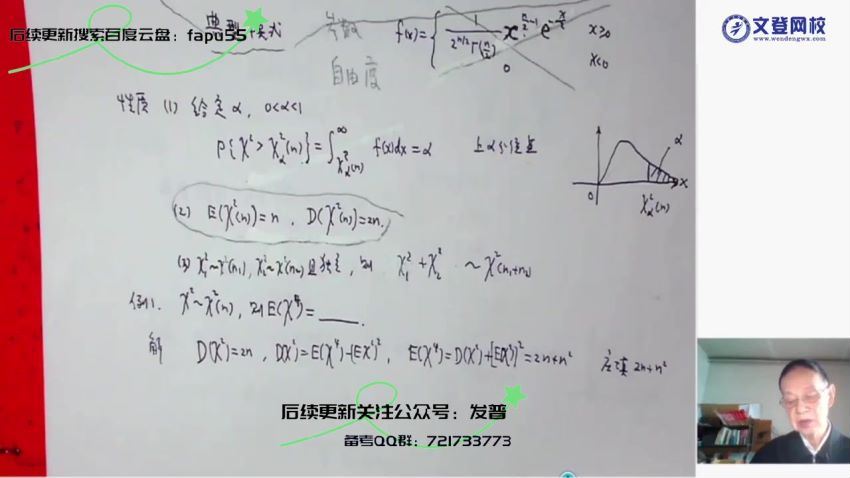 典型模式 参数 f(x)={ 1/(2^{n/2}Γ(n/2)) x^{n/2-1} e^{-x/2} x≥0
后续更新搜索百度云盘：fapu55
文登网校
www.wendengwx.com
0 x<0
自由度
性质 (1) 给定α, 0<α<1
P{χ²>χ²_α(n)}=∫_{χ²_α(n)}^∞ f(x)dx=α 上α分位点
α
0 x
χ²_α(n)
(2) E(χ²(n))=n, D(χ²(n))=2n.
(3) χ₁²~χ²(n₁), χ₂²~χ²(n₂)且独立, 则 χ₁²+χ₂² ~χ²(n₁+n₂)
例1. χ²~χ²(n), 则E(χ⁴)=____.
解 D(χ²)=2n, D(χ²)=E(χ⁴)-[Eχ²]², E(χ⁴)=D(χ²)+[E(χ²)]²=2n+n² 应填 2n+n²
后续更新关注公众号：发普
备考QQ群：721733773